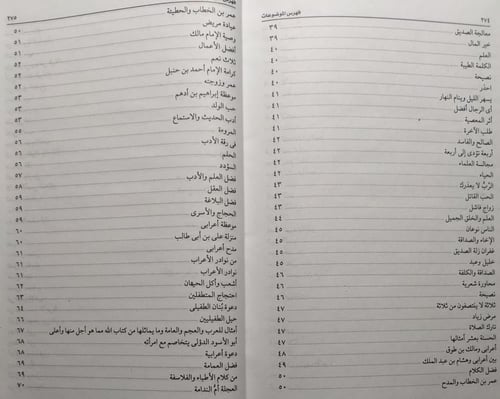 ٢٧٤ فهرس الموضوعات
معالجة الصديق ٣٩
خير المال ٣٩
العلم ٤٠
الكلمة الطيبة ٤٠
نصيحة ٤٠
احذر ٤٠
يسهر الليل وينام النهار ٤١
أى الرجال أفضل ٤١
أثر المعصية ٤١
طلب الآخرة ٤١
الصالح والفاسد ٤٢
أربعة تؤدى إلى أربعة ٤٢
مجالسة العلماء ٤٢
الحياء ٤٢
الرَّبُّ لا يعذرك ٤٣
الحب القاتل ٤٣
زواج فاشل ٤٣
العلم والخلق الجميل ٤٤
الناس نوعان ٤٥
الإخاء والصداقة ٤٥
غفران زلة الصديق ٤٥
خليل وعبد ٤٥
الصداقة والكلفة ٤٦
محاورة شعرية ٤٦
نصيحة ٤٦
ثلاثة لا ينتصفون من ثلاثة ٤٧
مرض زياد ٤٧
تارك الصلاة ٤٧
الحسنة بعشر أمثالها ٤٧
أعرابى ومالك بن طوق ٤٨
بين أعرابى وهشام بن عبد الملك ٤٩
فضل الكلام ٥٠
عمر بن الخطاب والمدح ٥٠
فهرس ٢٧٥
عمر بن الخطاب والحطيئة
عيادة مريض ٥٠
وصية الإمام مالك ٥١
أفضل الأعمال ٥١
ثلاث نعم ٥١
كرامة الإمام أحمد بن حنبل ٥٢
عمر وزوجته ٥٢
موعظة إبراهيم بن أدهم ٥٢
حب الولد ٥٣
أدب الحديث والاستماع ٥٣
المروءة ٥٥
فى رقة الأدب ٥٥
الحلم ٥٦
السؤدد ٥٦
فضل العلم والأدب ٥٧
فضل العقل ٥٨
فضل البلاغة ٥٩
الحجاج والأسرى ٥٩
موعظة أعرابى ٥٩
منزلة على بن أبى طالب ٦٠
مدح أعرابى ٦٠
من نوادر الأعراب ٦١
من نوادر الأعراب ٦١
أشعب وأكل الحيتان ٦١
احتجاج المتطفلين ٦٣
دعوة بُنان الطفيلى ٦٤
حيل الطفيليين ٦٥
أمثال للعرب والعجم والعامة وما يماثلها من كتاب الله مما هو أجل منها وأعلى ٦٧
أبو الأسود الدؤلى يتخاصم مع امرأته ٦٨
دعوة أعرابية ٦٨
فضل العمامة ٦٨
من كلام الأطباء والفلاسفة ٦٩
العجلة أمُّ الندامة ٧٠